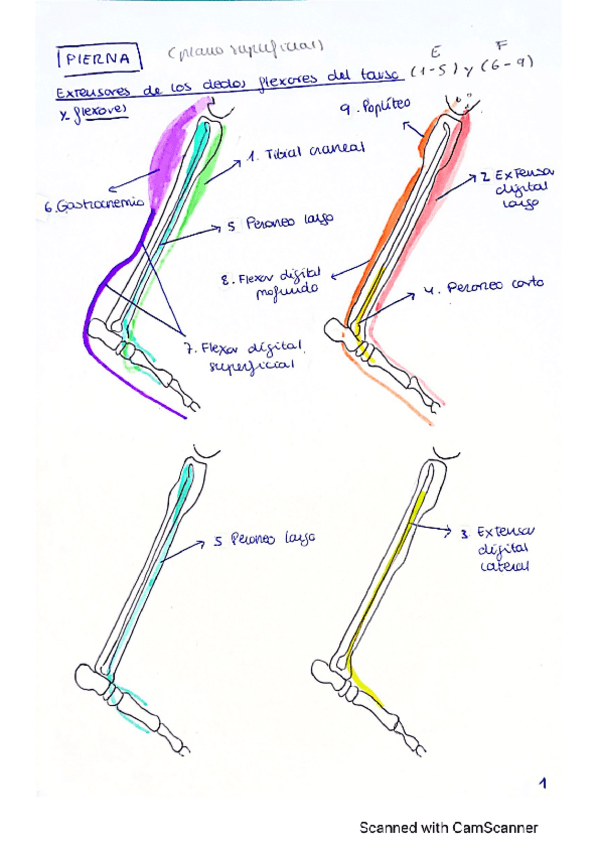 PIERNA (plano superficial)
E F
Extensores de los dedos flexores del tarso (1-5) y (6-9)
y flexores
9. Poplíteo
1. Tibial craneal
2 Extensor
digital
largo
6. Gastrocnemio
5 Peroneo largo
8. Flexor digital
profundo
4. Peroneo corto
7. Flexor digital
superficial
5 Peroneo largo
3. Extensor
digital
lateral
1
Scanned with CamScanner